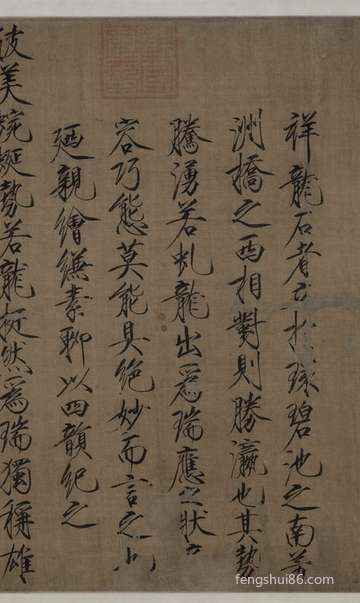 祥龍石者立於環碧池之南芳
洲橋之西相對則勝瀛也其勢
騰湧若虬龍出爲瑞應之狀奇
容巧態莫能具絕妙而言之也
廼親繪縑素聊以四韻紀之
彼美蜿蜒勢若龍挺然爲瑞獨稱雄
fengshui86.com